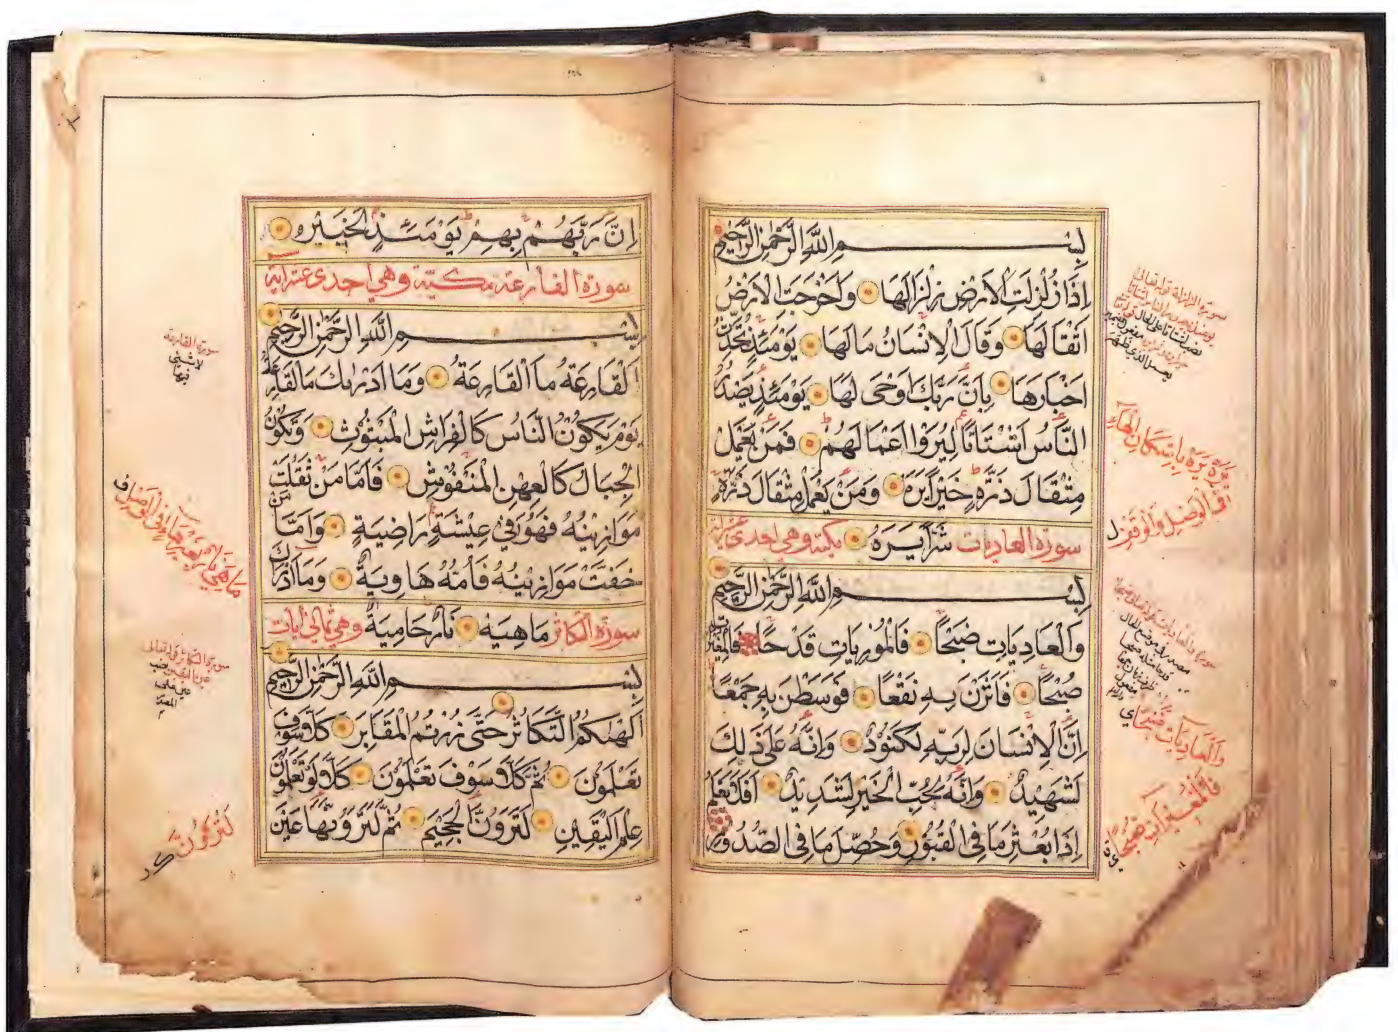 بِسْمِ اللَّهِ الرَّحْمَٰنِ الرَّحِيمِ
إِذَا زُلْزِلَتِ الْأَرْضُ زِلْزَالَهَا وَأَخْرَجَتِ الْأَرْضُ
أَثْقَالَهَا وَقَالَ الْإِنْسَانُ مَا لَهَا يَوْمَئِذٍ تُحَدِّثُ
أَخْبَارَهَا بِأَنَّ رَبَّكَ أَوْحَى لَهَا يَوْمَئِذٍ يَصْدُرُ
النَّاسُ أَشْتَاتًا لِيُرَوْا أَعْمَالَهُمْ فَمَنْ يَعْمَلْ
مِثْقَالَ ذَرَّةٍ خَيْرًا يَرَهُ وَمَنْ يَعْمَلْ مِثْقَالَ ذَرَّةٍ
سورة العاديات شَرًّا يَرَهُ مكية وهي احدى عشراية
بِسْمِ اللَّهِ الرَّحْمَٰنِ الرَّحِيمِ
وَالْعَادِيَاتِ ضَبْحًا فَالْمُورِيَاتِ قَدْحًا فَالْمُغِيرَاتِ
صُبْحًا فَأَثَرْنَ بِهِ نَقْعًا فَوَسَطْنَ بِهِ جَمْعًا
إِنَّ الْإِنْسَانَ لِرَبِّهِ لَكَنُودٌ وَإِنَّهُ عَلَى ذَٰلِكَ
لَشَهِيدٌ وَإِنَّهُ لِحُبِّ الْخَيْرِ لَشَدِيدٌ أَفَلَا يَعْلَمُ
إِذَا بُعْثِرَ مَا فِي الْقُبُورِ وَحُصِّلَ مَا فِي الصُّدُورِ
سورة الزلزلة قوله تعالى
وَالْعَادِيَاتِ ضَبْحًا
فَالْمُغِيرَاتِ صُبْحًا
إِنَّ رَبَّهُمْ بِهِمْ يَوْمَئِذٍ لَخَبِيرٌ
سورة القارعة مكية وهي احدى عشراية
بِسْمِ اللَّهِ الرَّحْمَٰنِ الرَّحِيمِ
الْقَارِعَةُ مَا الْقَارِعَةُ وَمَا أَدْرَاكَ مَا الْقَارِعَةُ
يَوْمَ يَكُونُ النَّاسُ كَالْفَرَاشِ الْمَبْثُوثِ وَتَكُونُ
الْجِبَالُ كَالْعِهْنِ الْمَنْفُوشِ فَأَمَّا مَنْ ثَقُلَتْ
مَوَازِينُهُ فَهُوَ فِي عِيشَةٍ رَاضِيَةٍ وَأَمَّا مَنْ
خَفَّتْ مَوَازِينُهُ فَأُمُّهُ هَاوِيَةٌ وَمَا أَدْرَاكَ
سورة التكاثر مَا هِيَهْ نَارٌ حَامِيَةٌ وهي ثماني ايات
بِسْمِ اللَّهِ الرَّحْمَٰنِ الرَّحِيمِ
أَلْهَاكُمُ التَّكَاثُرُ حَتَّى زُرْتُمُ الْمَقَابِرَ كَلَّا سَوْفَ
تَعْلَمُونَ ثُمَّ كَلَّا سَوْفَ تَعْلَمُونَ كَلَّا لَوْ تَعْلَمُونَ
عِلْمَ الْيَقِينِ لَتَرَوُنَّ الْجَحِيمَ ثُمَّ لَتَرَوُنَّهَا عَيْنَ
سورة القارعة
سورة التكاثر قوله تعالى
لَتَرَوُنَّ